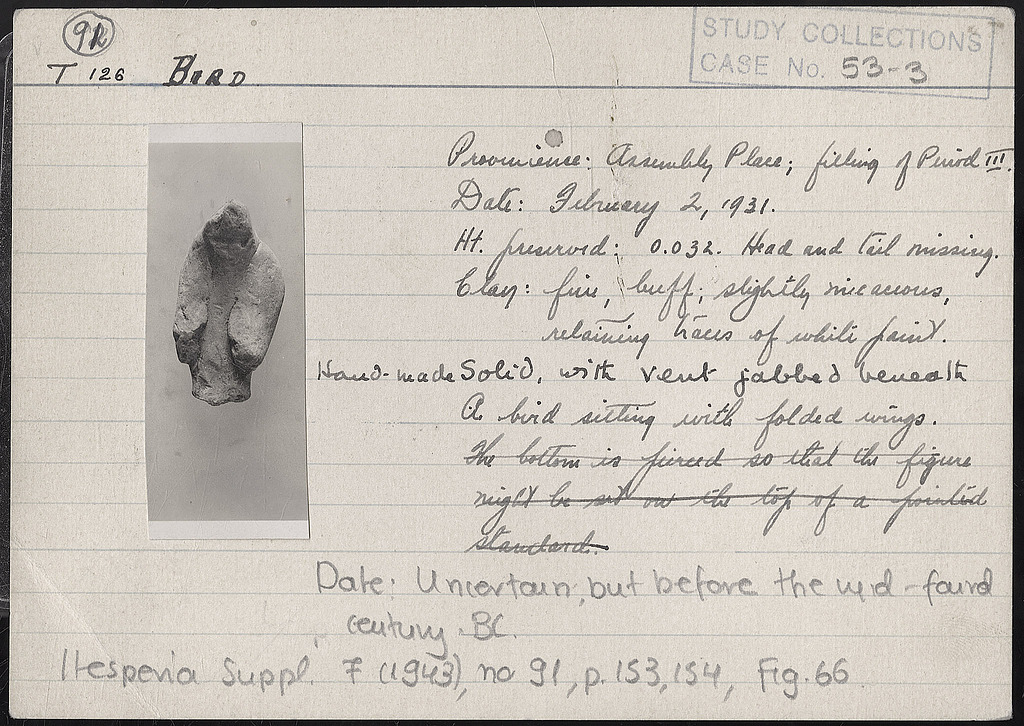 91
T 126 BIRD
STUDY COLLECTIONS
CASE No. 53-3
Provenience: Assembly Place; filling of Period III.
Date: February 2, 1931.
Ht. preserved: 0.032. Head and tail missing.
Clay: fine, buff; slightly micaceous,
retaining traces of white paint.
Hand-made Solid, with vent jabbed beneath
A bird sitting with folded wings.
The bottom is pierced so that the figure
might be set on the top of a pointed
standard.
Date: Uncertain, but before the mid-fourd
century BC.
Hesperia Suppl. 7 (1943), no 91, p. 153, 154, Fig. 66